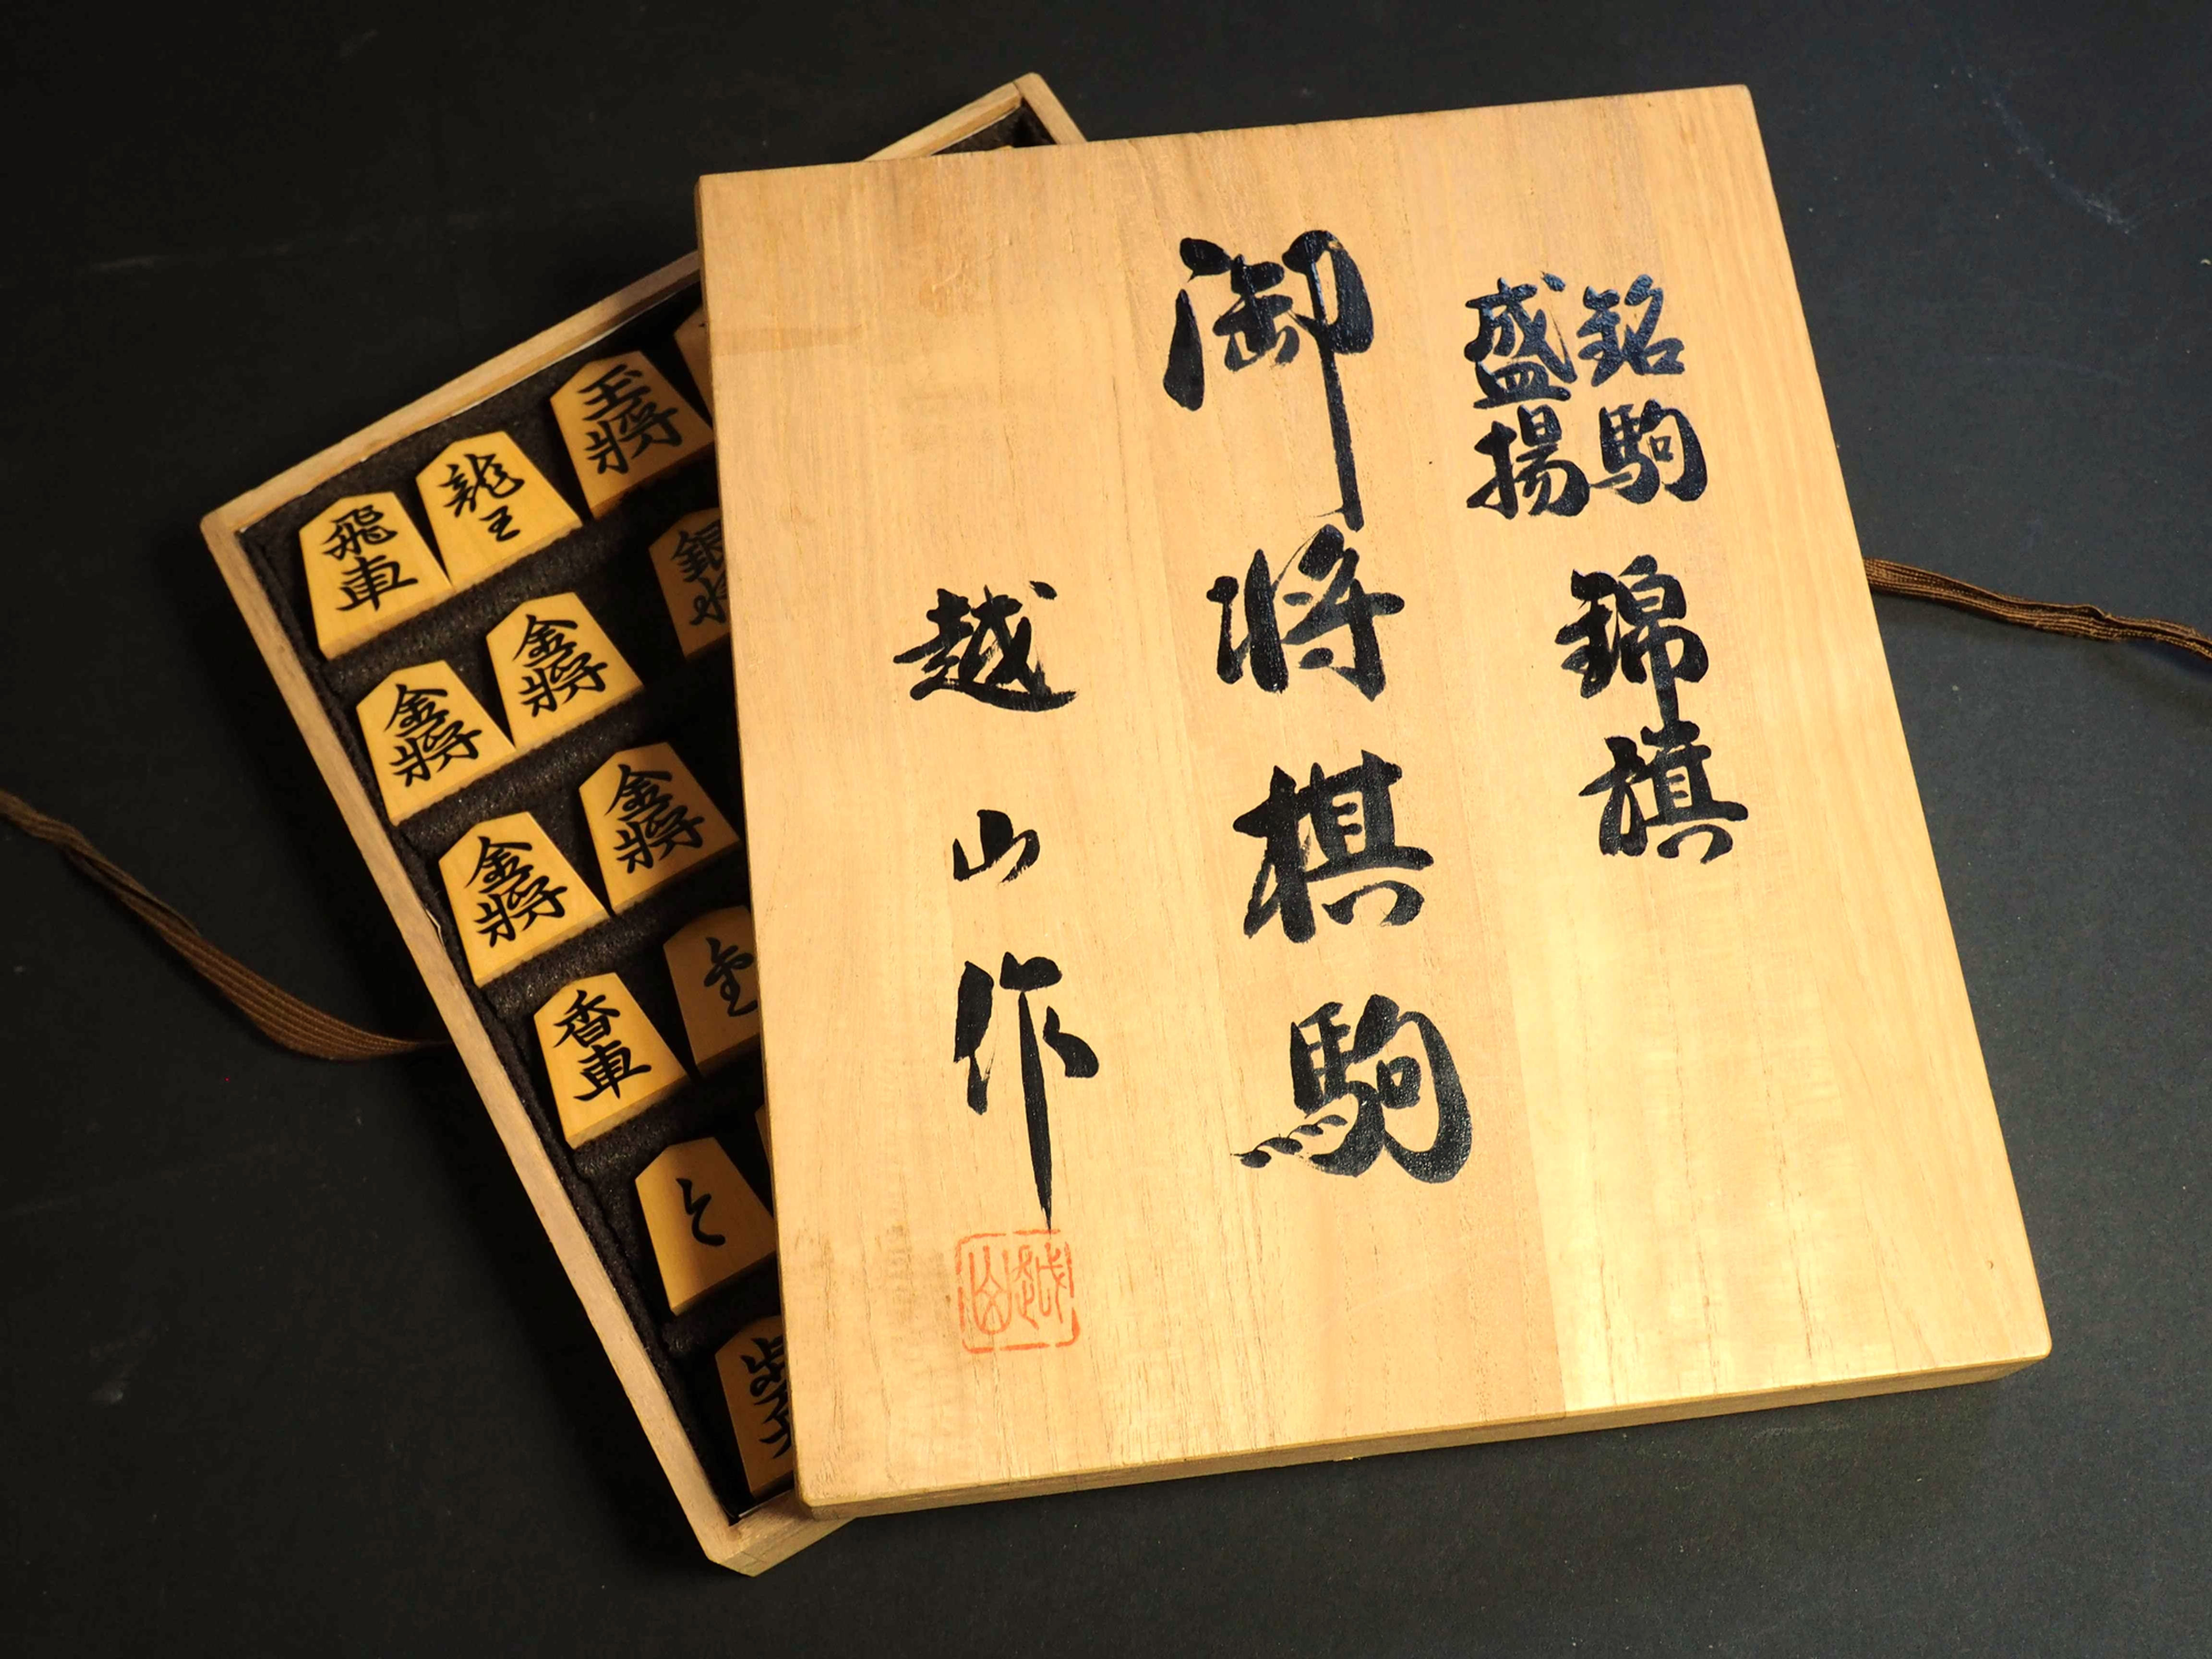 銘駒
盛揚
錦旗
御将棋駒
越山作
越山
飛車
龍王
玉將
金將
金將
銀將
金將
金將
香車
と